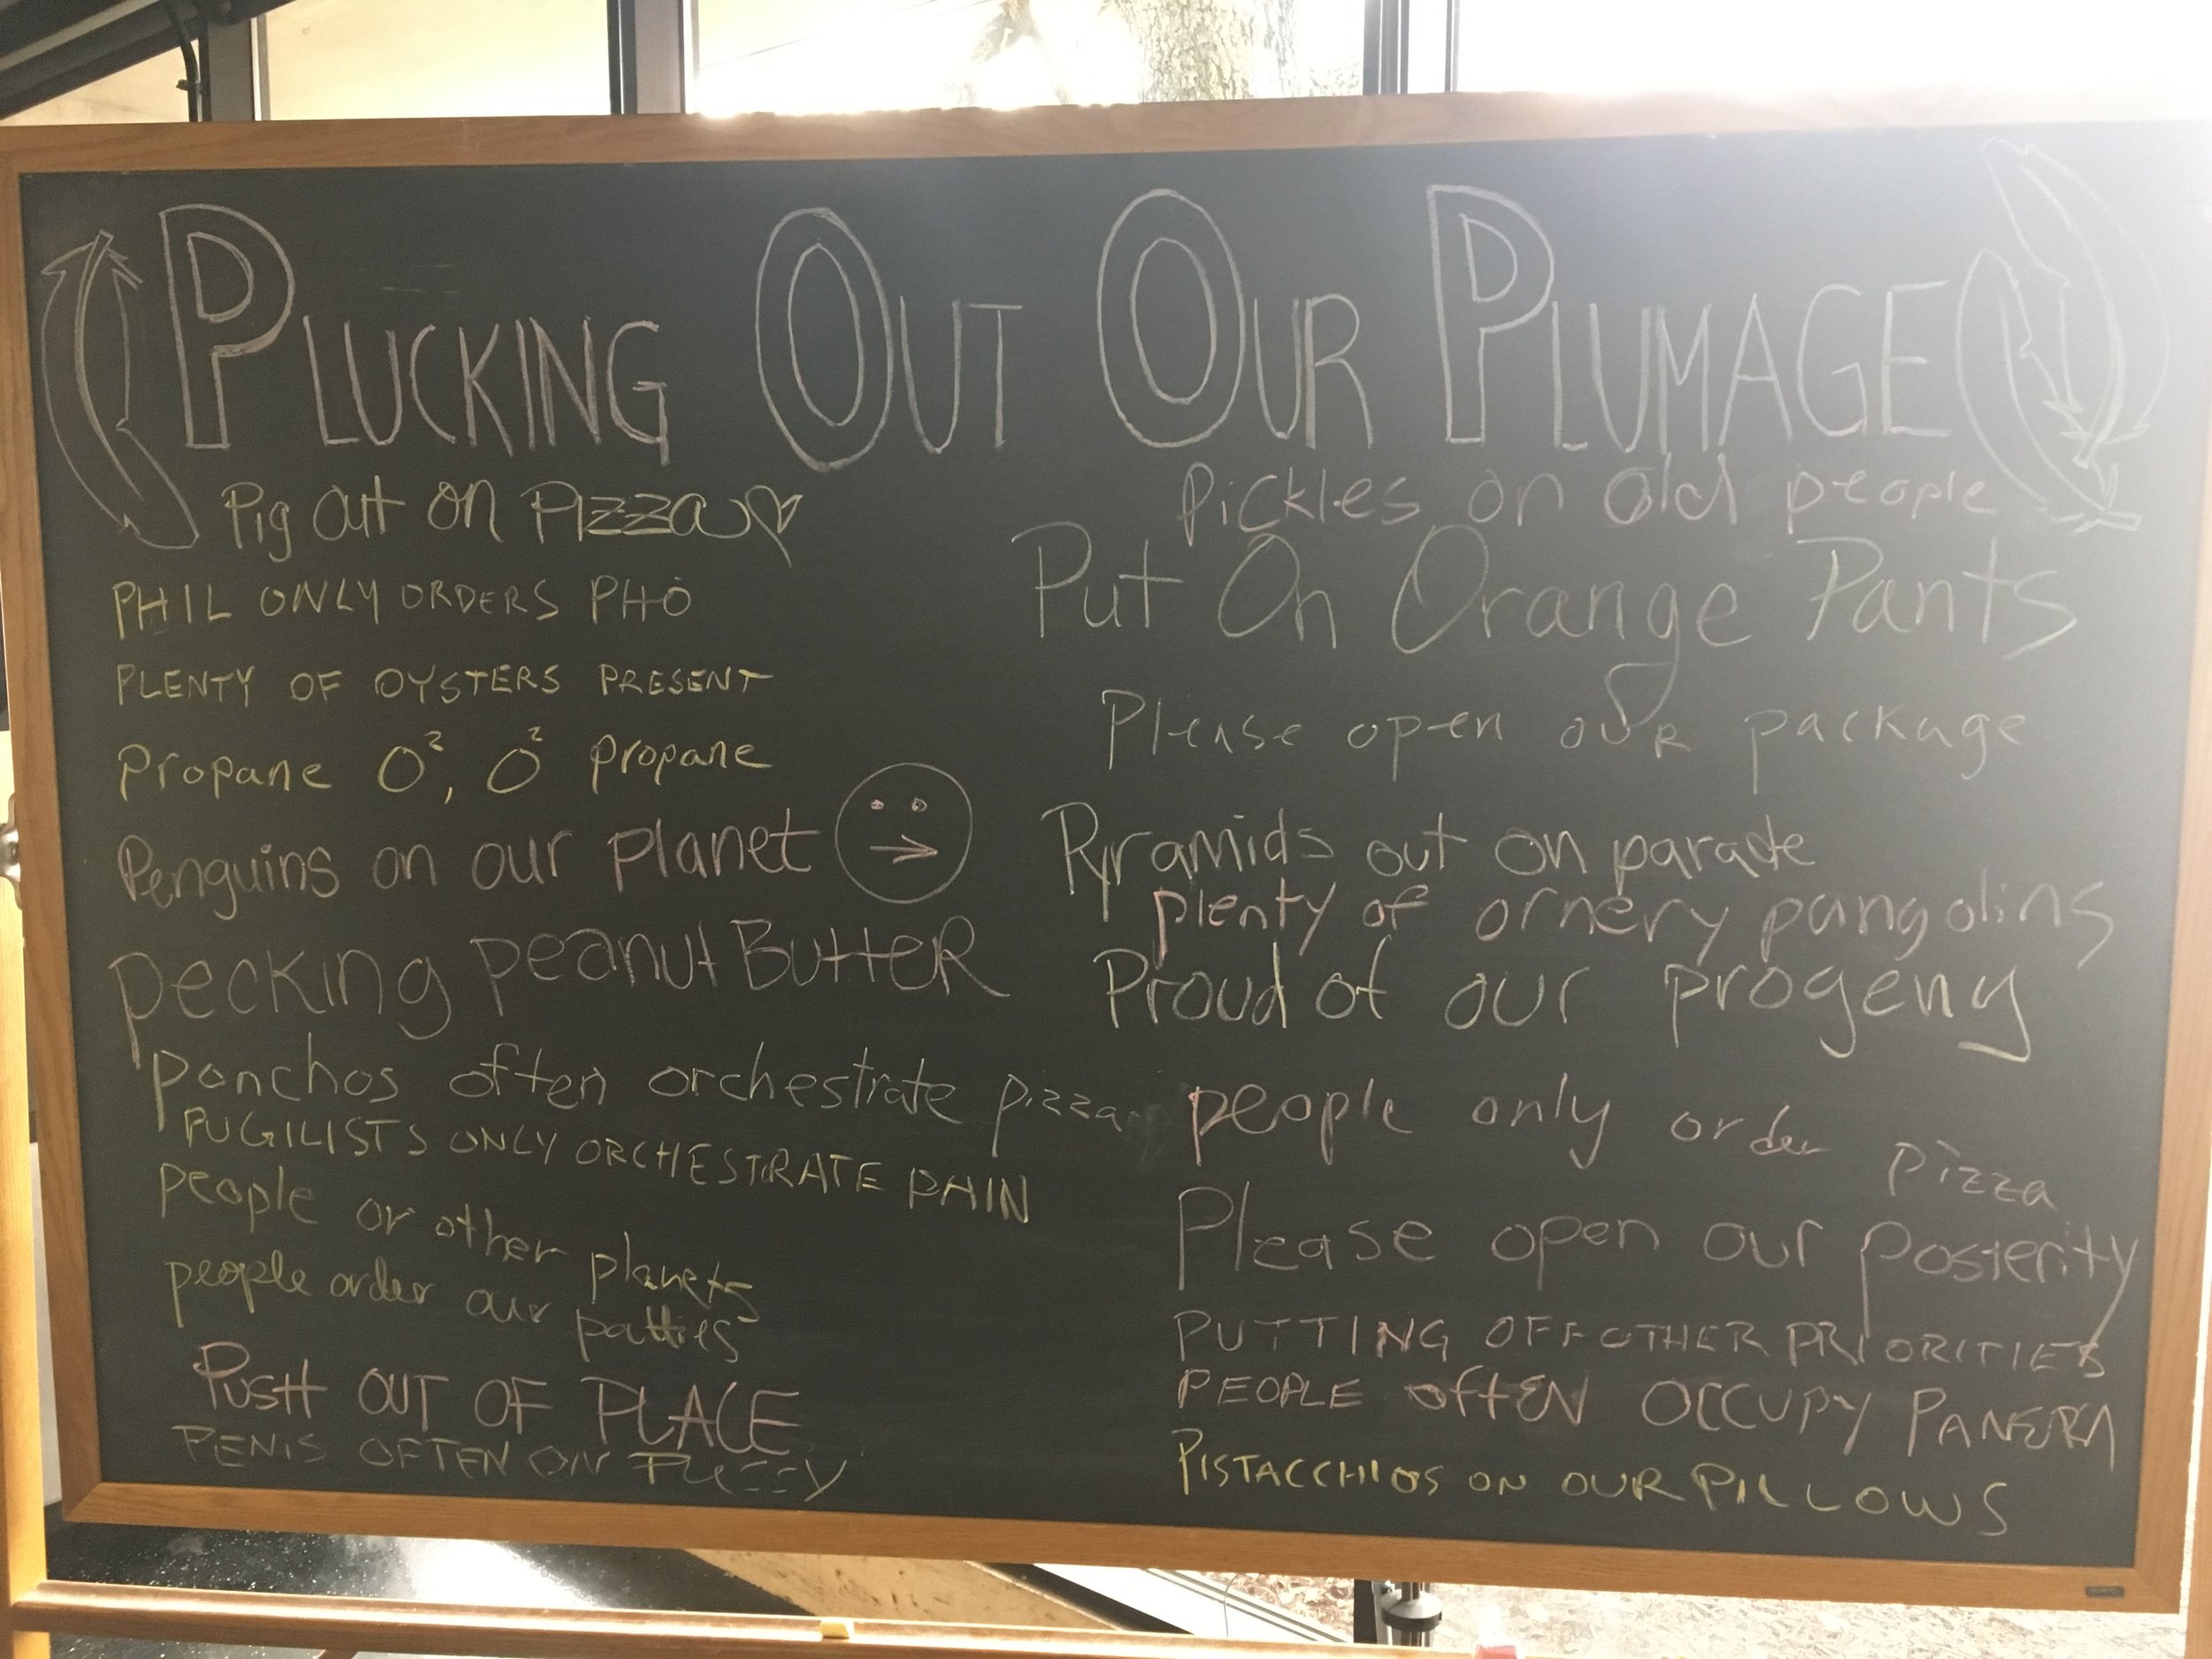 PLUCKING OUT OUR PLUMAGE
Pig out on PIZZA
PHIL ONLY ORDERS PHO
PLENTY OF OYSTERS PRESENT
Propane O², O² propane
Penguins on our planet
pecking peanut Butter
ponchos often orchestrate pizza
PUGILISTS ONLY ORCHESTRATE PAIN
people or other planets
people order our patties
PUSH OUT OF PLACE
PENIS OFTEN ON
Pickles on old people
Put On Orange Pants
Please open our package
Pyramids out on parade
plenty of ornery pangolins
Proud of our progeny
people only order pizza
Please open our posterity
PUTTING OFF OTHER PRIORITIES
PEOPLE OFTEN OCCUPY PANERA
PISTACCHIOS ON OUR PILLOWS